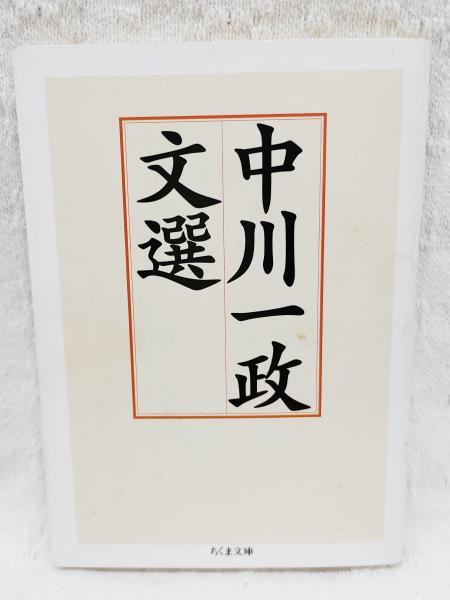 中川一政
文選
ちくま文庫